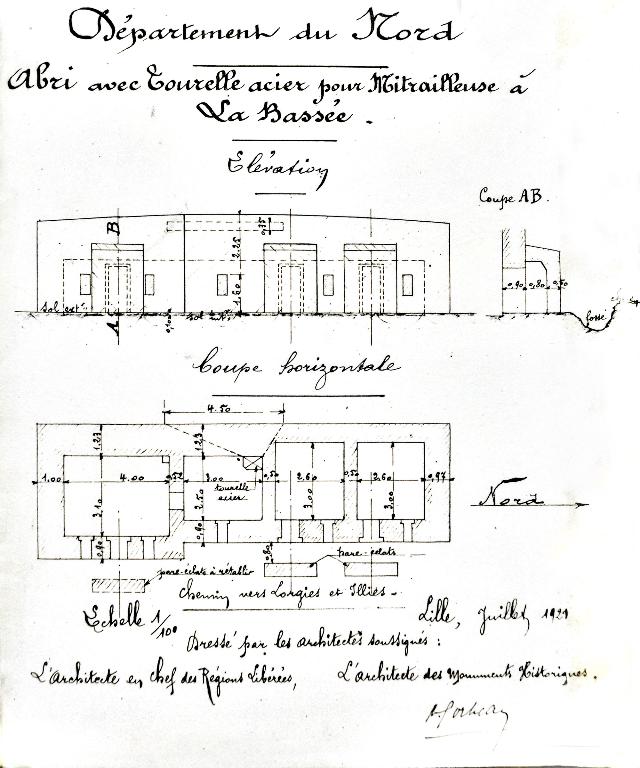 Département du Nord
Abri avec Tourelle acier pour Mitrailleuse à
La Bassée.
Elévation
Coupe AB.
B
0,35
2.25
1.60
sol extr
A
sol extr
0,90 0,80 0,50
fossé
Coupe horizontale
4.50
1.23
1.23
1.00
4.00
0,52
3.00
0,50
2.60
0,50
2.60
0,97
tourelle
acier
3.10
2.50
3.00
3.00
0,90
0,90
0,80
Nord
pare-éclats
pare-éclats à rétablir
Chemin vers Lorgies et Illies.
Echelle 1/100
Lille, Juillet 1921
Dressé par les architectes soussignés:
L'architecte en chef des Régions Libérées,
L'architecte des Monuments Historiques.